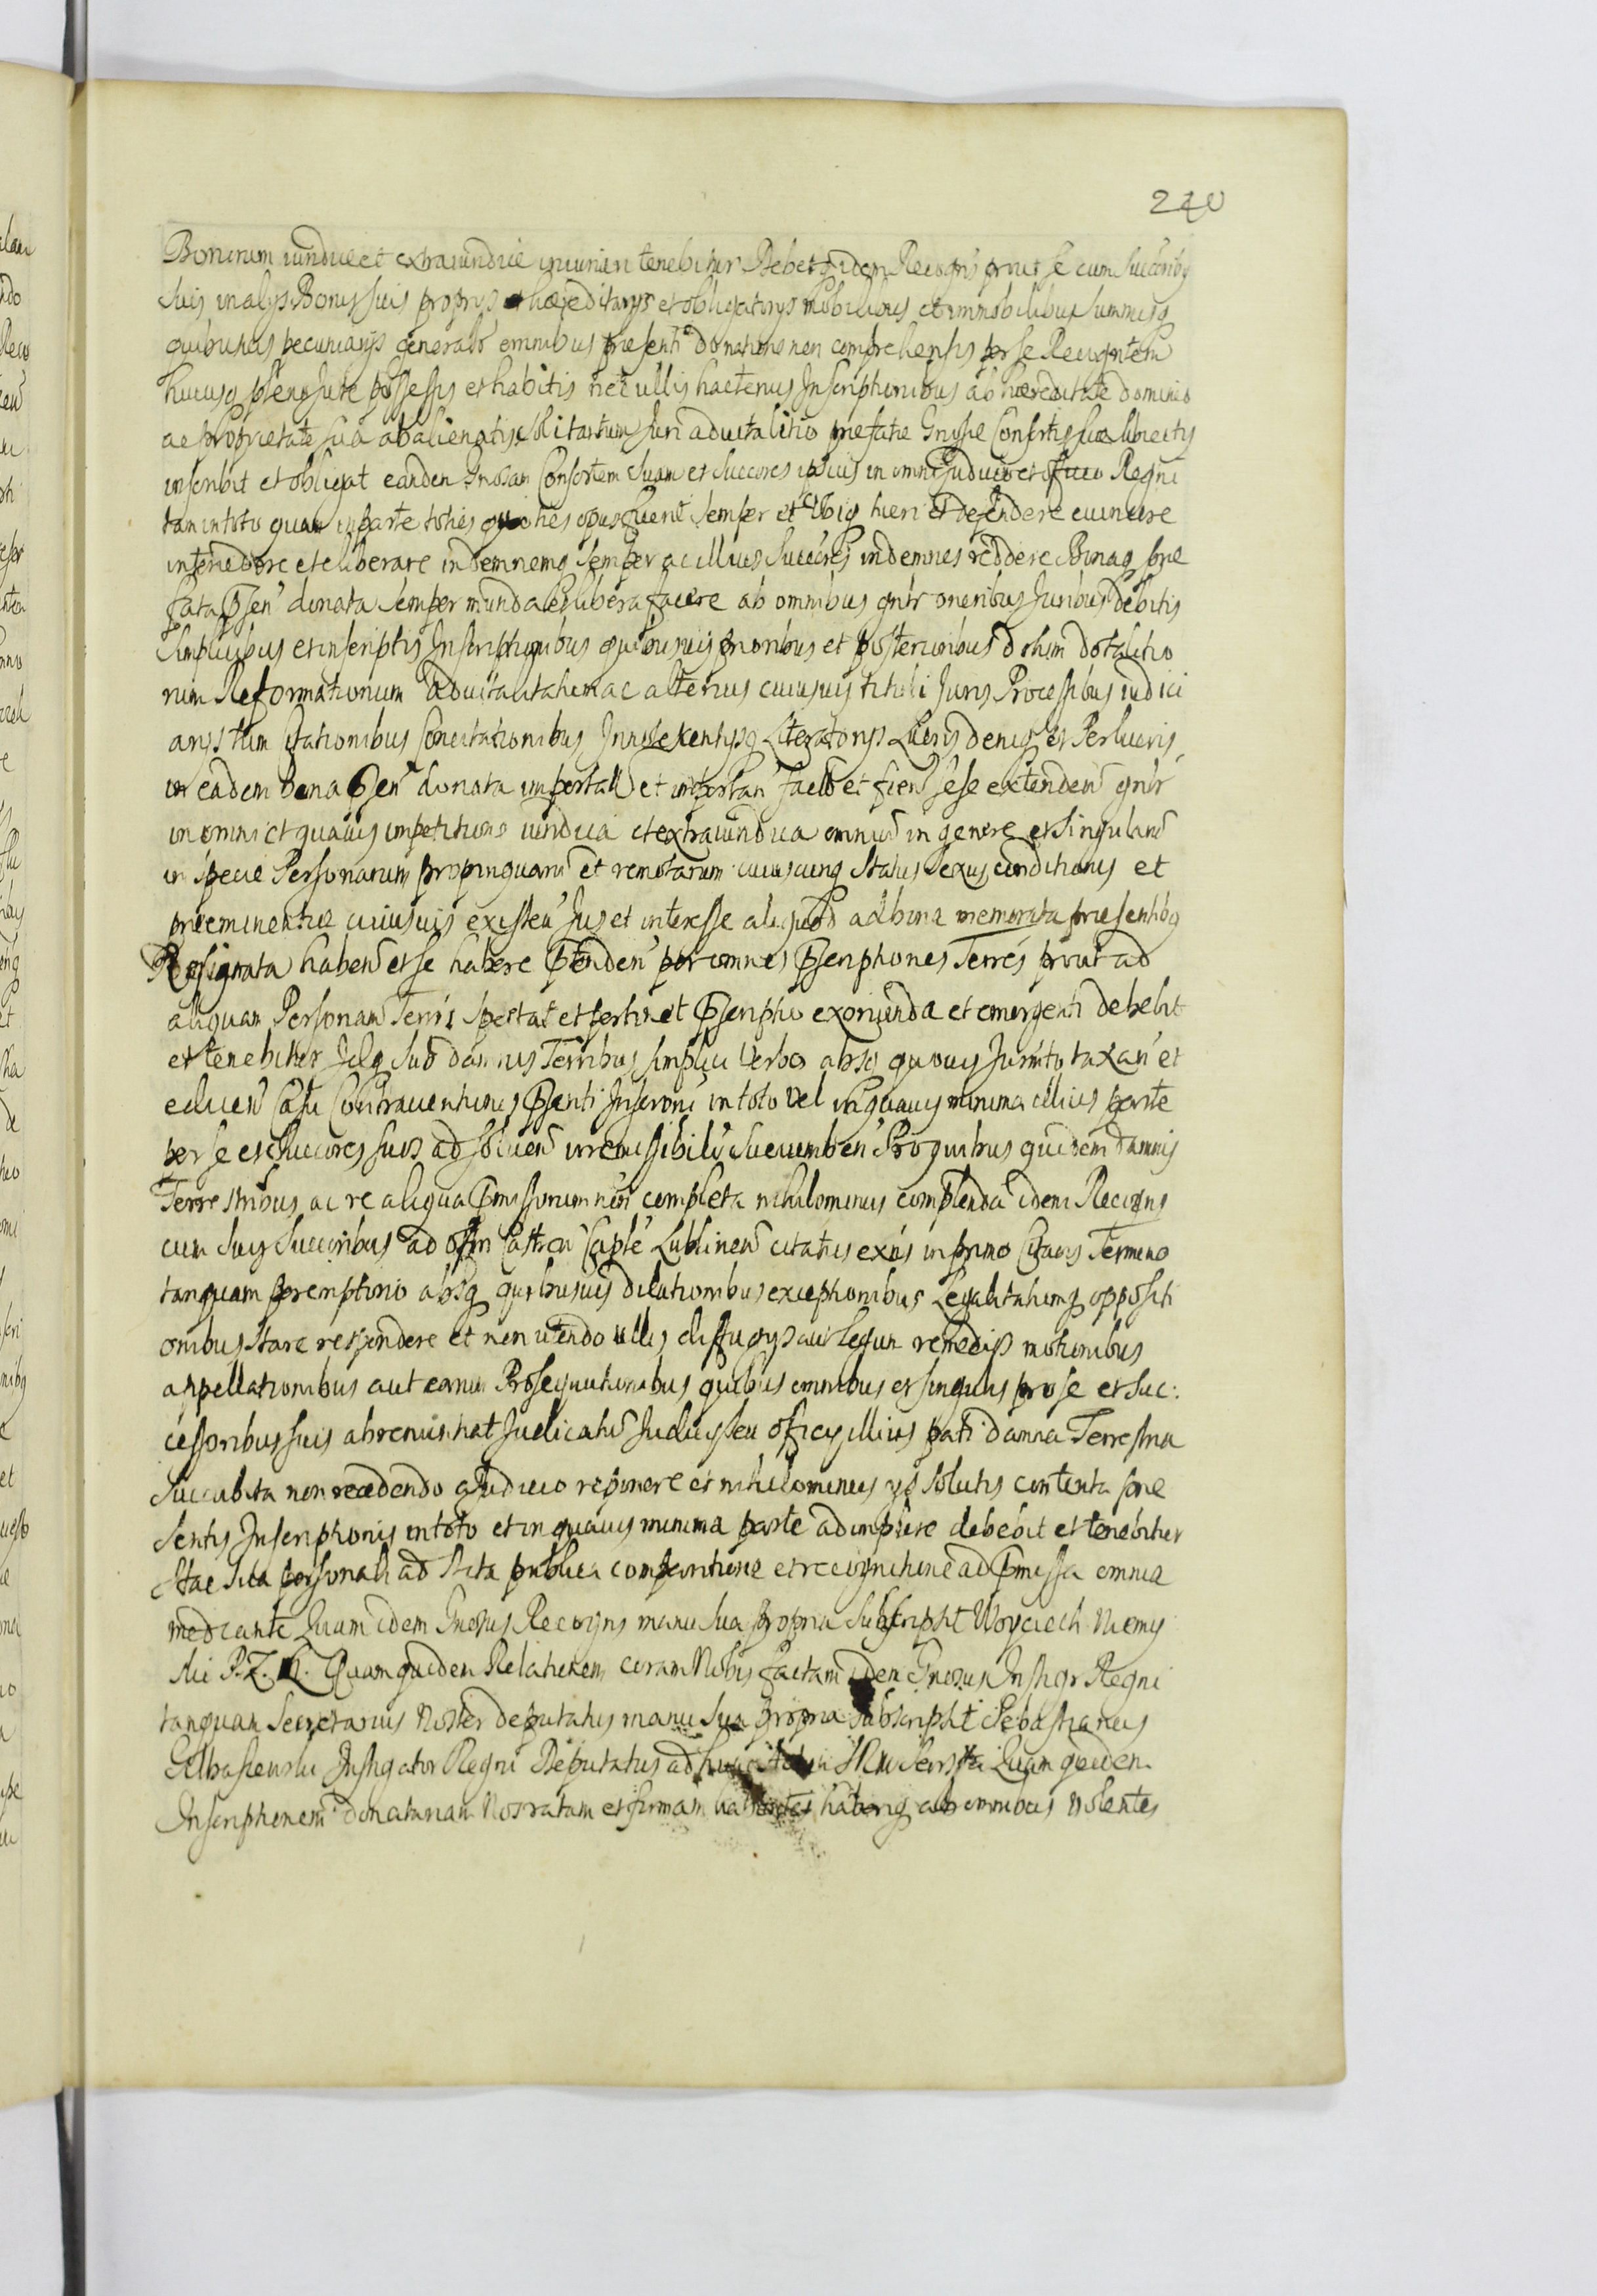 240
Bonorum iuridice et extraiuridice tenebitur Debet idem Recogns prout se cum Succoribq
suis in alys Bonis suis proprys et hæreditarys et obligatorys mobilibus et immobilibus summisq
quibusuis pecuniarys generalr omnibus præsenti donatione non comprehensis per se Recogntem
hucusq pleno Jure possessis et habitis nec ullis hactenus Inscriptionibus ab hæreditate dominio
ac proprietate sua abalienatis Juri aduitalitio præfatæ Gnosæ Consortis suæ
inscribit et obligat eandem Gnosam Consortem suam et succores ipsius in omni Judicio et officio Regni
tam in toto quam in parte toties quoties opus fuerit semper et vbiq tueri et defendere euincere
intercedere et liberare indemnemq semper ac illius succores indemnes reddere Bonaq præ
fata Psen donata semper munda et libera facere ab omnibus gnlr oneribus Juribus debitis
simplicibus et inscriptis Inscriptionibus quibusuis prioribus et posterioribus dotium dotalitio
rum Reformationum aduitalitatum ac alterius cuiusuis tituli Juris Processibus iudici
arys tum citationibus Concitationibus Literatorys Lucris deniq et Perlucris
in eadem bona Psen donata et factis et fien sese extenden gnlr
in omni et quauis impetitione iuridica et extraiuridica omnium in genere et singularum
in specie Personarum propinquarum et remotarum cuiuscunq status sexus conditionis et
præeminentiæ cuiusuis existen Jus et interesse aliquod ad bona memorata præsentibq
Resignata haben et se habere Ptenden per omnes Pscriptiones Terres prout ad
aliquam Personam Terris spectat et pertinet Pscriptio exoriunda et emergenti debebit
et tenebitur Idq sub damnis Terribus simplici verbo absq quouis Jurnto taxan et
educen casu Contrauentionis Psenti Inscroni in toto vel in quauis minima illius parte
per se et succores suos ad soluen irremissibilr succumben Pro quibus quidem damnis
Terrestribus ac re aliqua Pmissorum non completa nihilominus complenda idem Recogns
cum suis Succoribus ad offm Castren Caple Lublinen citatus exns in primo Citaonis Termino
tanquam peremptorio absq quibusuis dilationibus exceptionibus Legalitatumq oppositi
onibus stare respondere et non utendo ullis diffugys aut legum remedys motionibus
appellationibus aut earum Prosequutionibus quibus omnibus et singulis pro se et suc:
cessoribus suis abrenunciat Judicatum Judicy seu officy illius pati damna Terrestria
succubita non recedendo a Judicio reponere et nihilominus ys solutis contenta præ
sentis Inscriptionis in toto et in quauis minima parte adimplere debebit et tenebitur
Hac sua personali ad Acta publica comparitione et recognitione ad Pmissa omnia
mediante Quam idem Gnosus Recogns manu sua propria subscripsit Woyciech Niemy
ski P. Z. Quam quidem Relationem coram Nobis factam idem Gnosus Instigr Regni
tanquam Secretarius Noster deputatus manu sua propria subscripsit Sebastianus
Instigator Regni Deputatus ad hunc Actum Quam quidem
Inscriptionem donatariam Nos ratam et firmam haberiq ab omnibus volentes